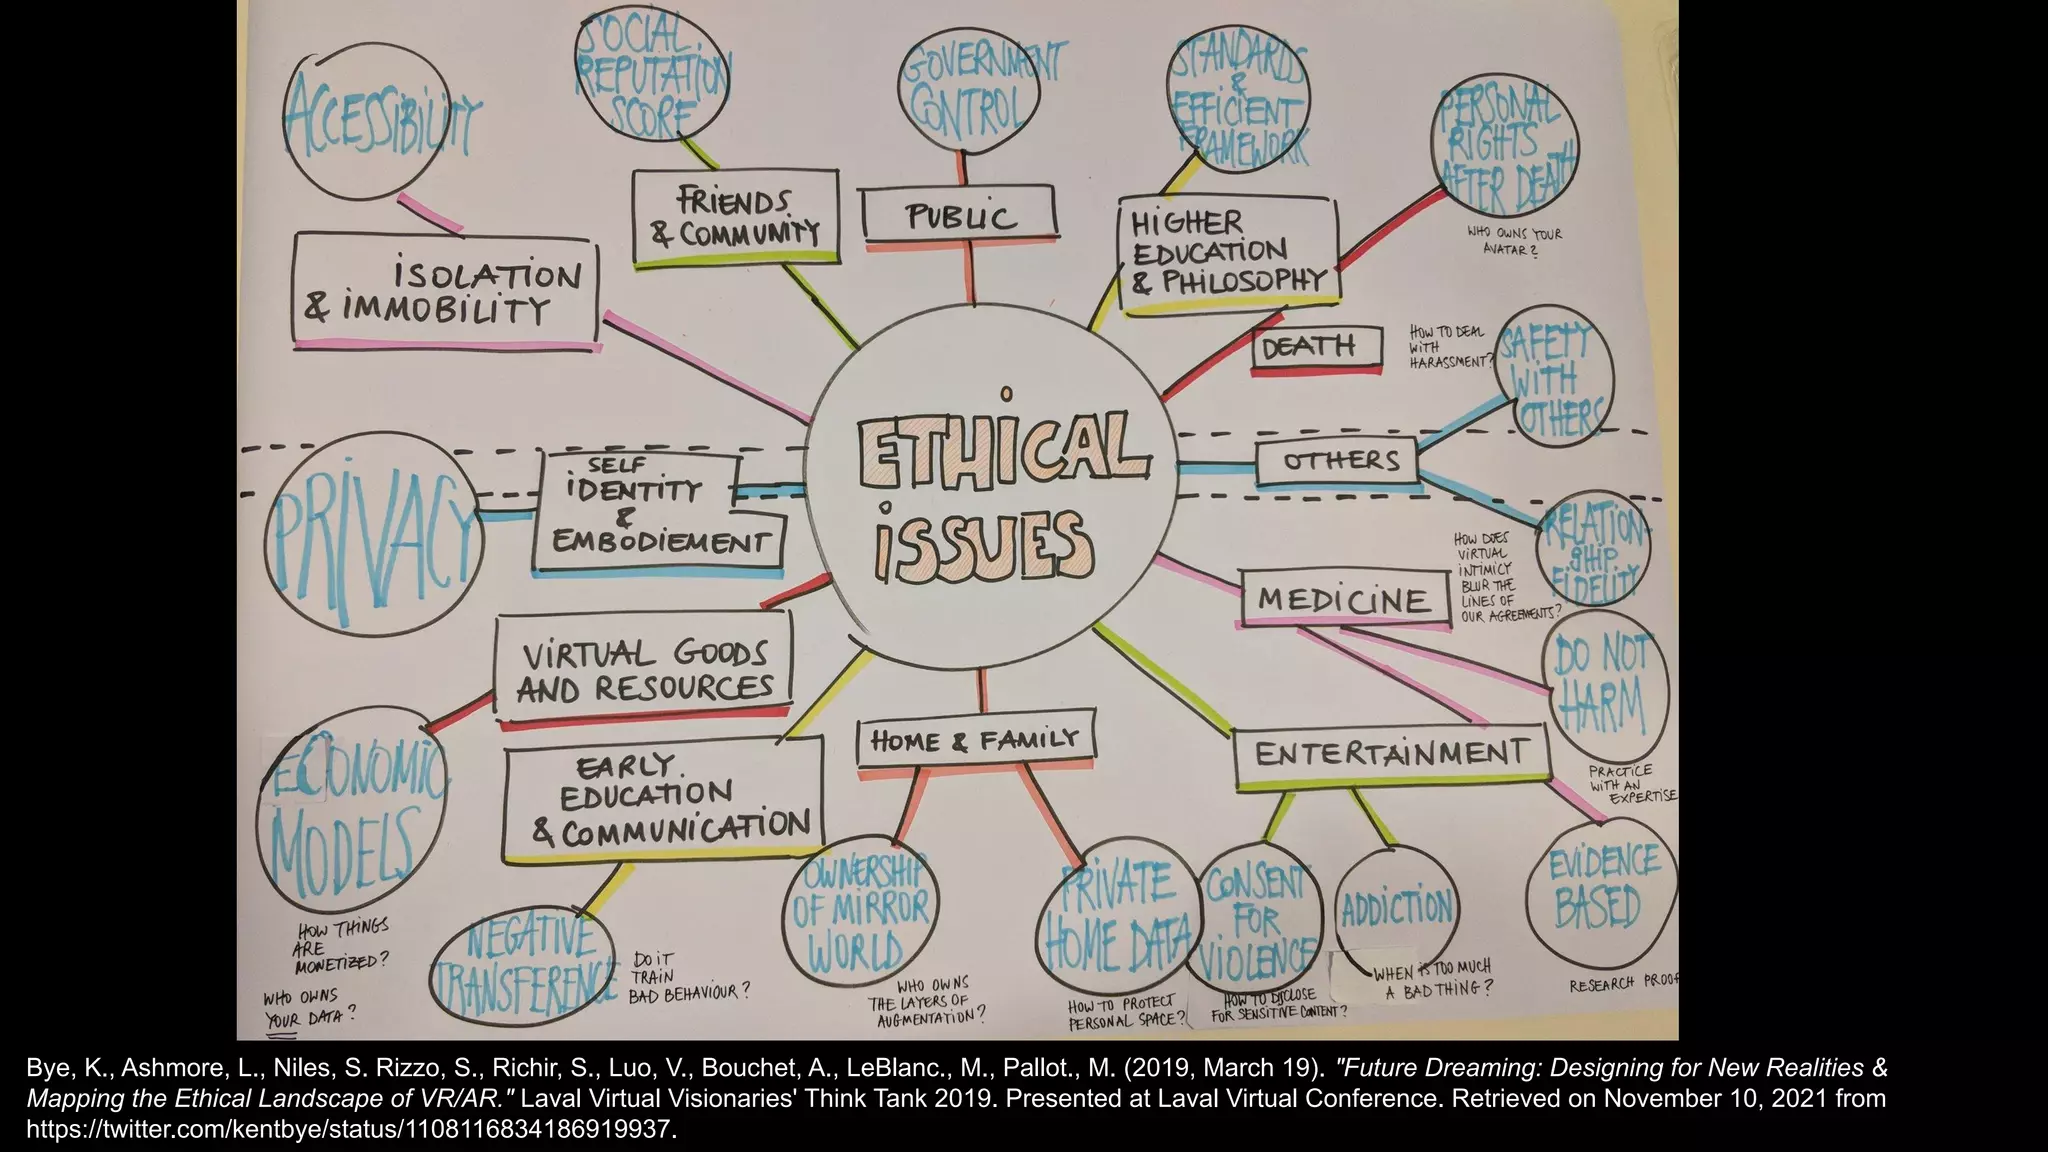 ACCESSIBILITY
ISOLATION
& IMMOBILITY
SOCIAL
REPUTATION
SCORE
FRIENDS
& COMMUNITY
GOVERNMENT
CONTROL
PUBLIC
STANDARDS
&
EFFICIENT
FRAMEWORK
HIGHER
EDUCATION
& PHILOSOPHY
PERSONAL
RIGHTS
AFTER DEATH
WHO OWNS YOUR
AVATAR?
DEATH
HOW TO DEAL
WITH
HARASSMENT?
SAFETY
WITH
OTHERS
OTHERS
ETHICAL
ISSUES
PRIVACY
SELF
IDENTITY
&
EMBODIEMENT
RELATION-
SHIP
FIDELITY
HOW DOES
VIRTUAL
INTIMICY
BLUR THE
LINES OF
OUR AGREEMENTS?
MEDICINE
DO NOT
HARM
PRACTICE
WITH AN
EXPERTISE
VIRTUAL GOODS
AND RESOURCES
ECONOMIC
MODELS
HOW THINGS
ARE
MONETIZED?
WHO OWNS
YOUR DATA?
EARLY
EDUCATION
& COMMUNICATION
NEGATIVE
TRANSFERENCE
DO IT
TRAIN
BAD BEHAVIOUR?
HOME & FAMILY
OWNERSHIP
OF MIRROR
WORLD
WHO OWNS
THE LAYERS OF
AUGMENTATION?
PRIVATE
HOME DATA
HOW TO PROTECT
PERSONAL SPACE?
ENTERTAINMENT
CONSENT
FOR
VIOLENCE
HOW TO DISCLOSE
FOR SENSITIVE CONTENT?
ADDICTION
WHEN IS TOO MUCH
A BAD THING?
EVIDENCE
BASED
RESEARCH PROOF
Bye, K., Ashmore, L., Niles, S. Rizzo, S., Richir, S., Luo, V., Bouchet, A., LeBlanc., M., Pallot., M. (2019, March 19). "Future Dreaming: Designing for New Realities &
Mapping the Ethical Landscape of VR/AR." Laval Virtual Visionaries' Think Tank 2019. Presented at Laval Virtual Conference. Retrieved on November 10, 2021 from
https://twitter.com/kentbye/status/1108116834186919937.